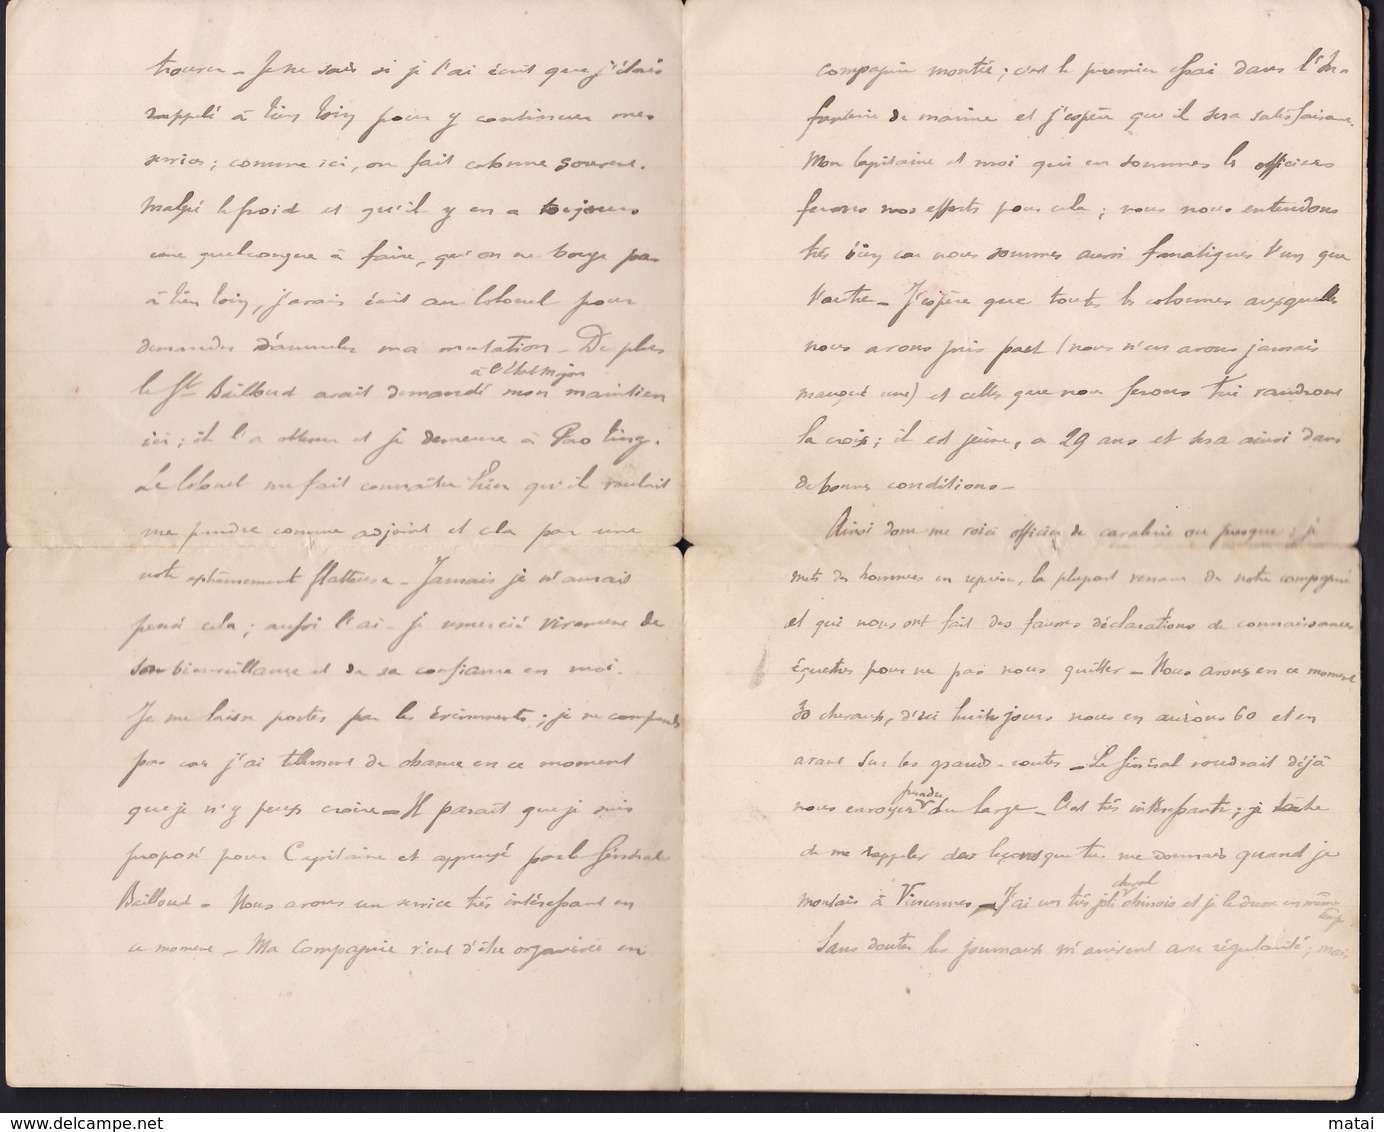 trouver – Je ne sais si je t'ai écrit que j'étais
rappelé à Tien Tsin pour y continuer mes
services ; comme ici, on fait colonne souvent.
Malgré le froid et qu'il y en a toujours
une quelconque à faire, qu'on ne bouge pas
à Tien Tsin, j'avais écrit au Colonel pour
demander d'annuler ma mutation – De plus
à l'état major
le Gl Bailloud avait demandé mon maintien
ici ; il l'a obtenu et je demeure à Pao Ting.
Le Colonel me fait connaître hier qu'il voulait
me prendre comme adjoint et cela par une
note extrêmement flatteuse – Jamais je n'aurais
pensé cela ; aussi l'ai-je remercié vivement de
son bienveillance et de sa confiance en moi.
Je me laisse porter par les événements ; je ne comprends
pas car j'ai tellement de chance en ce moment
que je n'y peux croire – Il parait que je suis
proposé pour Capitaine et appuyé par le Général
Bailloud – Nous avons un service très intéressant en
ce moment – Ma Compagnie vient d'être organisée en
compagnie montée ; c'est le premier essai dans l'In-
fanterie de marine et j'espère qu'il sera satisfaisant.
Mon Capitaine et moi qui en sommes les officiers
ferons nos efforts pour cela ; nous nous entendons
très bien car nous sommes aussi fanatiques l'un que
l'autre – J'espère que toutes les colonnes auxquelles
nous avons pris part (nous n'en avons jamais
manqué une) et celles que nous ferons lui vaudront
la croix ; il est jeune, a 29 ans et sera ainsi dans
de bonnes conditions –
Ainsi donc me voici officier de cavalerie ou presque ; je
mets des hommes en reprise, la plupart venant de notre compagnie
et qui nous ont fait des fausses déclarations de connaissances
équestres pour ne pas nous quitter – Nous avons en ce moment
30 chevaux, d'ici huit jours nous en aurons 60 et en
avant sur les grands-routes – Le Général voudrait déjà
prendre
nous envoyer du large – C'est très intéressante ; je tâche
de me rappeler des leçons que tu me donnais quand je
cheval
montais à Vincennes – J'ai un très joli chinois et je le dresse en même
temps
Sans doutes les journaux m'arrivent avec régularité ; mais